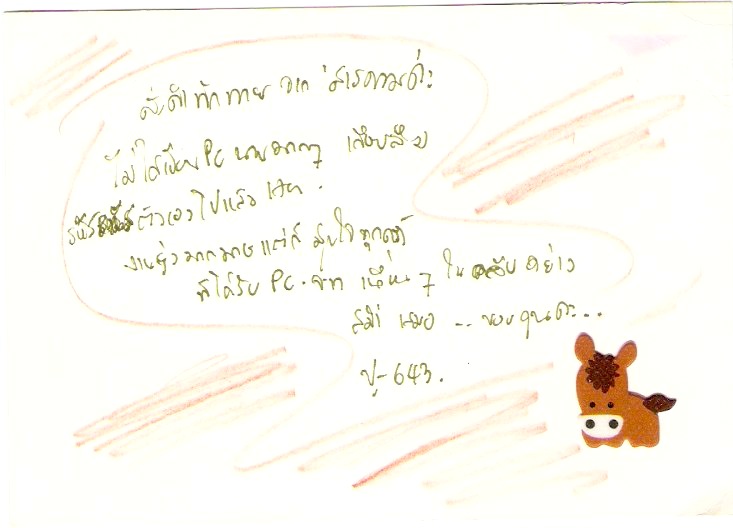 สวัสดีทักทาย จาก สารคามค่ะ
ไม่ได้เขียน PC นานมากๆ เกือบลืม
ตัวเองไปแล้วเลย .
งานยุ่งมากมายแต่ก็ สุขใจทุกครั้ง
ที่ได้รับ PC. จาก เพื่อน ๆ ใน อย่าง
สม่ำ เสมอ ... ขอบคุณค่ะ...
ปู-643.